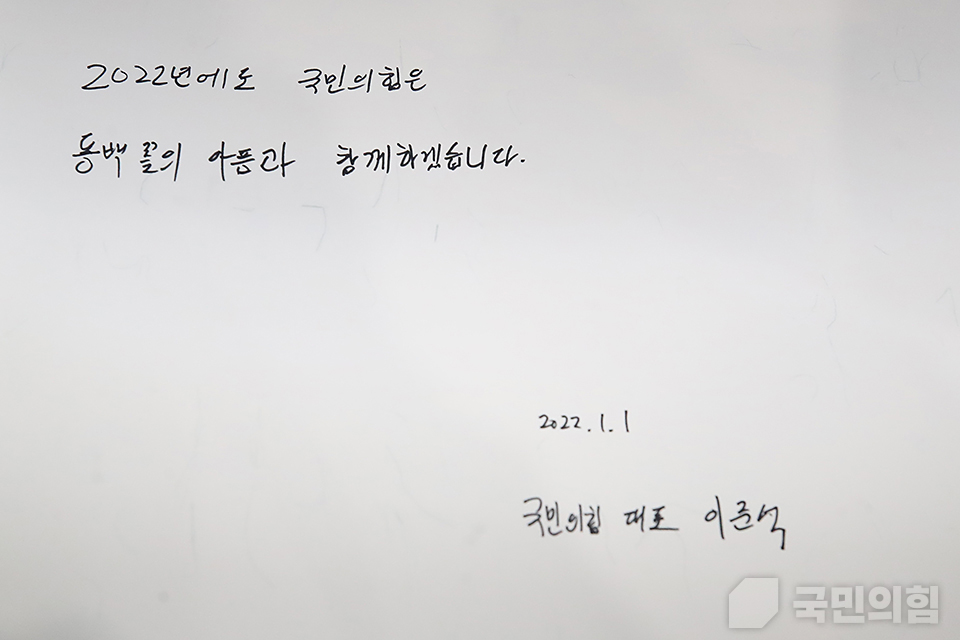 2022년에도 국민의힘은
동백꽃의 아픔과 함께하겠습니다.
2022.1.1
국민의힘 대표 이준석
국민의힘